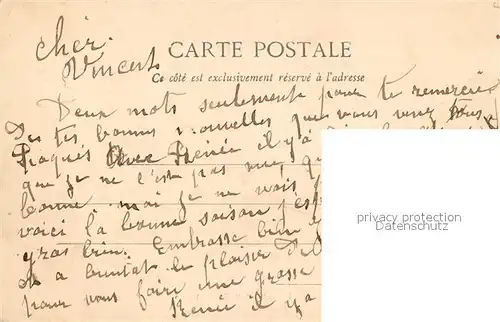 Cher
Vincent
CARTE POSTALE
Ce côté est exclusivement réservé à l'adresse
Deux mots seulement pour te remercie
Des tes bonnes nouvelles que vous venez tous
Paques Avec Renée il y a
que je ne l'est pas vue, qu
bonne. moi je ne vois
voici la bonne saison j'esp
gras bien. Embrasse bien
et a bientot le plaisir de
pour vous faire une grosse
Renée il y a
privacy protection
Datenschutz